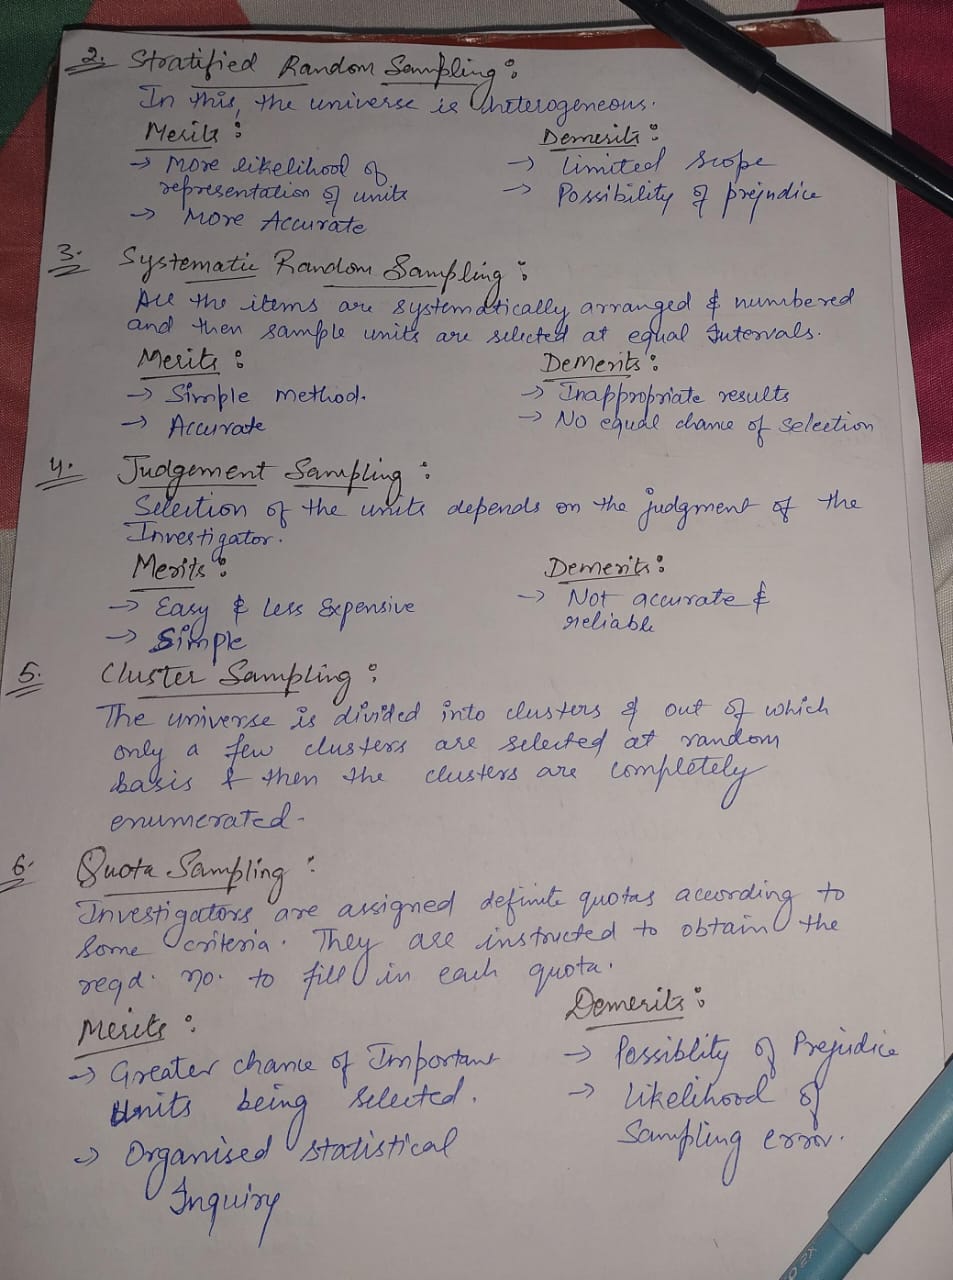 2. Stratified Random Sampling :
In this, the universe is heterogeneous.
Merits :
→ More likelihood of
representation of units
→ More Accurate
Demerits :
→ Limited scope
→ Possibility of prejudice
3. Systematic Random Sampling :
All the items are systematically arranged & numbered
and then sample units are selected at equal Intervals.
Merits :
→ Simple method.
→ Accurate
Demerits :
→ Inappropriate results
→ No equal chance of selection
4. Judgement Sampling :
Selection of the units depends on the judgment of the
Investigator.
Merits :
→ Easy & Less Expensive
→ Simple
Demerits :
→ Not accurate &
reliable
5. Cluster Sampling :
The universe is divided into clusters & out of which
only a few clusters are selected at random
basis & then the clusters are completely
enumerated.
6. Quota Sampling :
Investigators are assigned definite quotas according to
some criteria. They are instructed to obtain the
reqd. no. to fill in each quota.
Merits :
→ Greater chance of Important
Units being selected.
→ Organised statistical
Inquiry
Demerits :
→ Possiblity of Prejudice
→ Likelihood of
Sampling error.